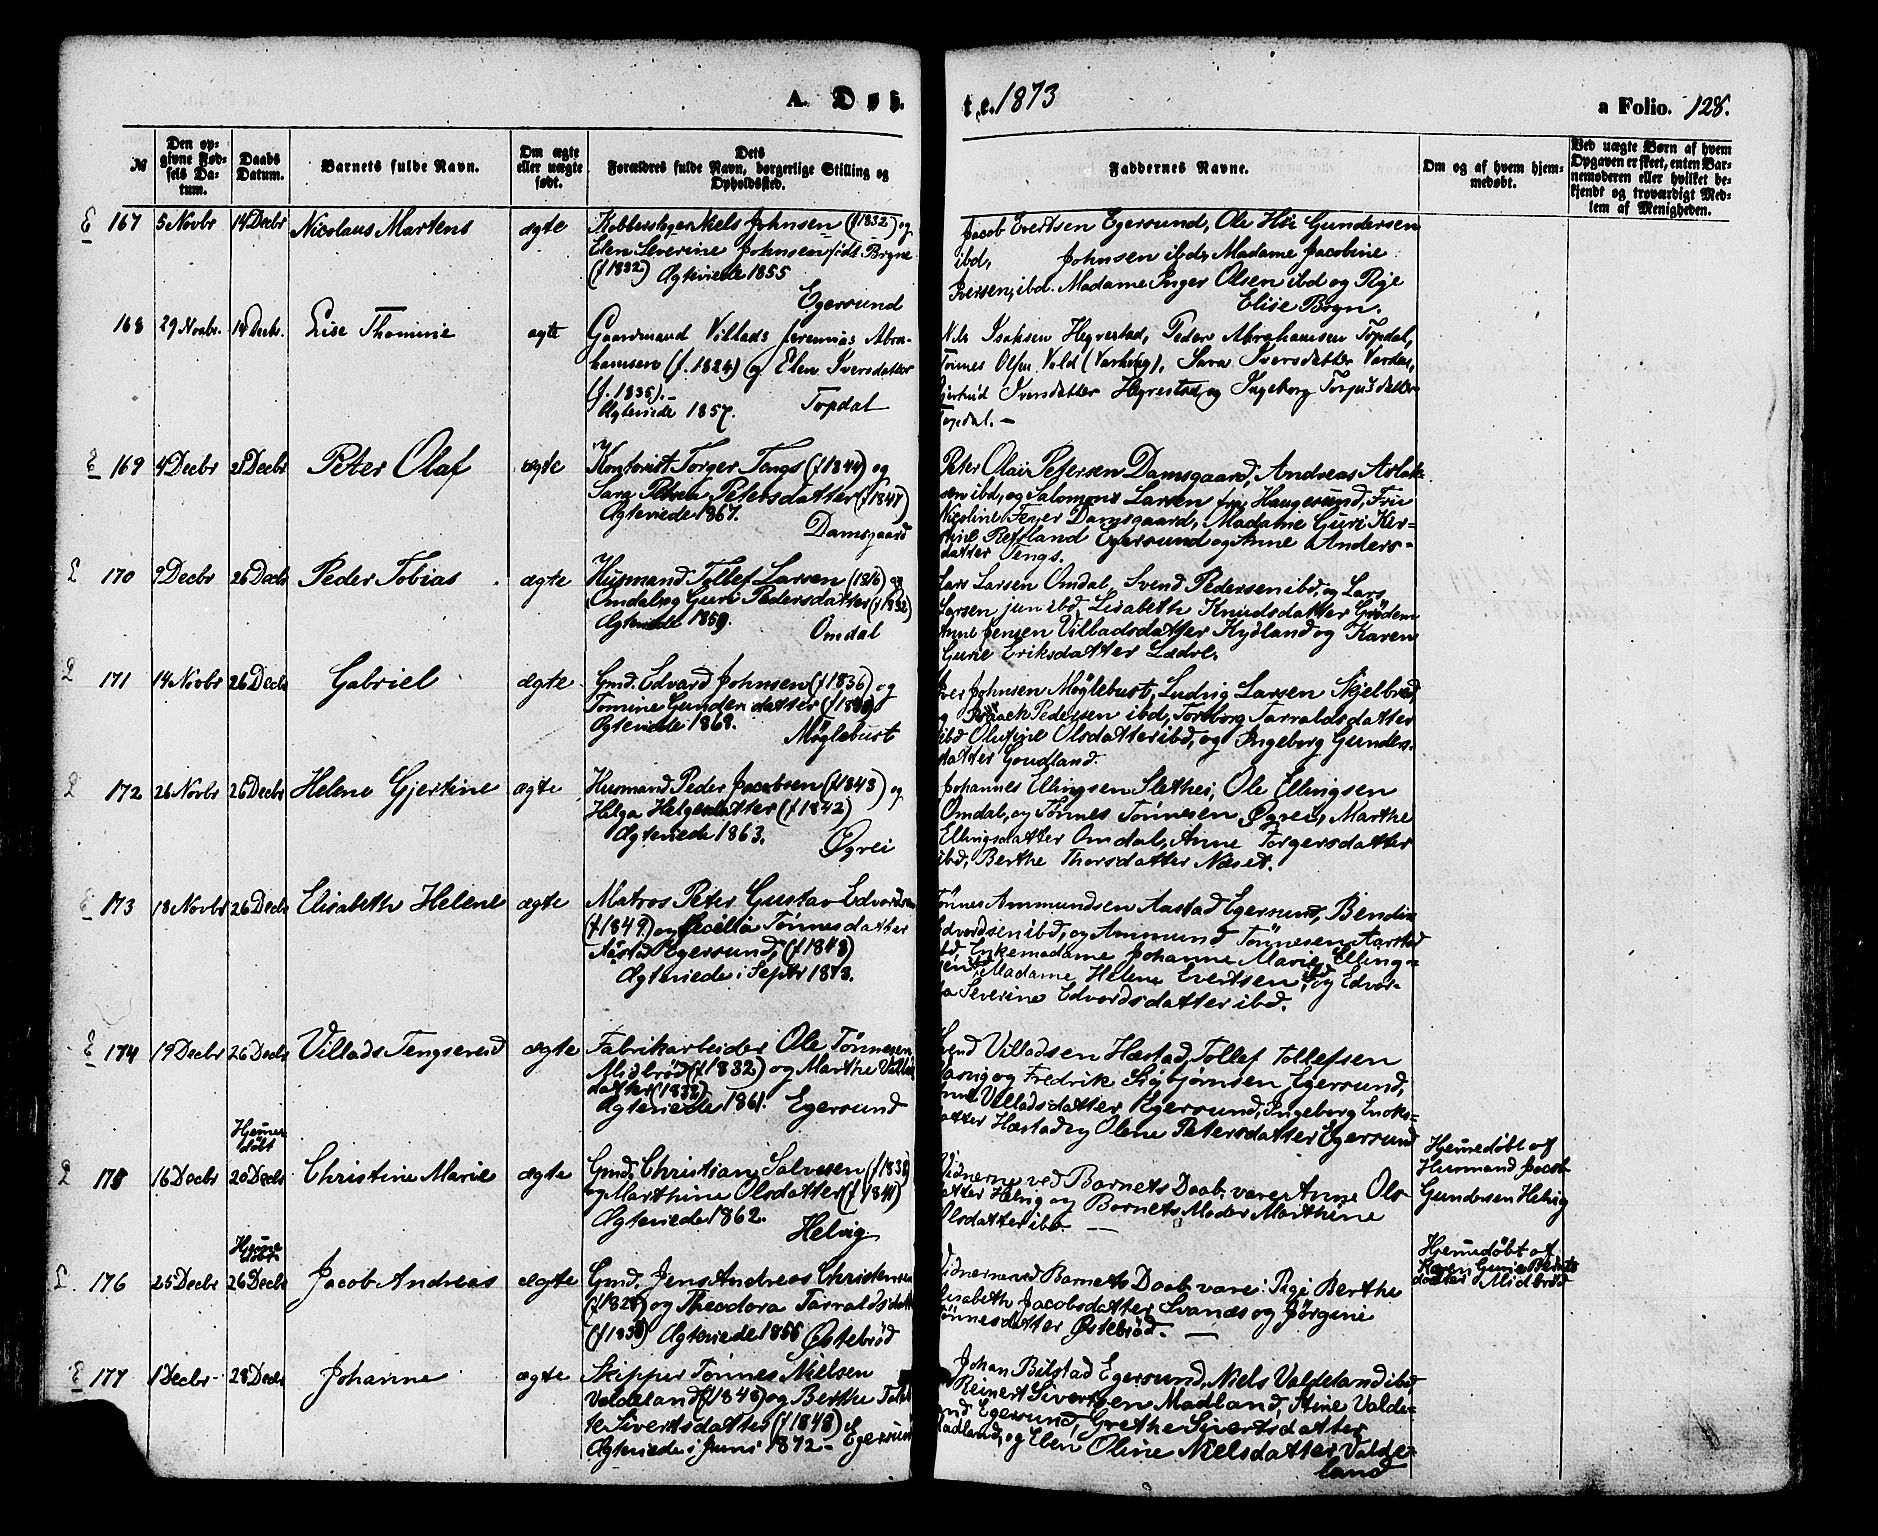 A. Døb- te. 1873
a Folio. 128.
№
Den op-
givne Fød-
sels Da-
tum.
Daabs
Datum.
Barnets fulde Navn.
Om ægte
eller uægte
født.
Dets
Forældres fulde Navn, borgerlige Stilling og
Opholdssted.
Faddernes Navne.
Om og af hvem hjem-
medøbt.
Ved uægte Børn af hvem
Opgaven er skeet, enten Bar-
nemoderen eller hvilket be-
kjendt og troværdigt Med-
lem af Menigheden.
E 167 5 Novbr 14 Decbr Nicolaus Martens ægte
Kobberslager Niels Johnsen (f 1832) og
Elen Severine Johnsen født Bryne
(f 1832) Ægteviede 1855
Egersund
Jacob Evertsen Egersund, Ole Høi Gundersen
ibd, Johnsen ibd, Madame Jacobine
Iversen, ibd. Madame Inger Olsen ibd og Pige
Elise Bryn.
168 29 Novbr. 14 Decbr. Lise Thomine ægte
Gaardmand Villads Jeremias Abra-
hamsen (f. 1824) og Elen Iversdatter
(f. 1835).-
Ægteviede 1857. Topdal
Nils Isaksen Hegrestad, Peder Abrahamsen Topdal,
Tønnes Olsen Vold (Varhoug), Sara Iversdatter Vardas,
Gjertrud Iversdatter Hegrestad og Ingeborg Torjusdatter
Topdal. -
E 169 4 Decbr 21 Decbr Peter Olaf ægte
Kontorist Torger Tengs (f 1844) og
Sara Petrea Petersdatter (f 1847)
Ægteviede 1867.
Damsgaard
Peter Olai Petersen Damsgaard, Andreas Aslak-
sen ibd, og Salomons Larsen fra Haugesund, Fru
Nicoline Feyer Damsgaard, Madame Guri Kir-
stine Refsland Egersund og Anne Anders-
datter Tengs.
L 170 9 Decbr 26 Decbr Peder Tobias ægte
Husmand Tollef Larsen (1816) og
Omdal og Guri Pedersdatter (f 1832)
Ægteviede 1859.
Omdal
Lars Larsen Omdal, Svend Pedersen ibd, og Lars
Larsen jun ibd, Lisabeth Knudsdatter Grøden
Anne Jensen Villadsdatter Kydland og Karen
Gurie Eriksdatter Lædre.
L 171 14 Novbr 26 Decbr Gabriel ægte
Gmd. Edvard Johnsen (f 1836) og
Tomine Gundersdatter
Ægteviede 1869.
Møglebust
Iver Johnsen Møglebust, Ludvig Larsen Skjelbred
og Isaach Pedersen ibd, Torborg Tarraldsdatter
ibd Olufine Olsdatter ibd, og Ingeborg Gunders-
datter Goudland.
L 172 26 Novbr 26 Decbr Helene Gjertine ægte
Husmand Peder Jacobsen (f 1843) og
Helga Helgesdatter (f 1842)
Ægteviede 1863.
Øgrei
Johannes Ellingsen Slethei, Ole Ellingsen
Omdal, og Tønnes Tønnesen Øgrei, Marthe
Ellingsdatter Omdal, Anne Torgersdatter
ibd, Berthe Thorsdatter Næset.
E 173 18 Novbr 26 Decbr Elisabeth Helene ægte
Matros Peter Gustav Edvardsen
(f 1849) og Cecilia Tønnesdatter
Aastad Egersund, (f 1848)
Ægteviede i Septr 1873.
Tønnes Ammundsen Aastad Egersund, Bendix
Edvardsen ibd, og Ammund Tønnesen Aarstad
ibd, Enkemadame Johanne Marie Elling-
sen ibd, Madame Helene Evertsen ibd og Edvar-
da Severine Edvardsdatter ibd.
E 174 19 Decbr 26 Decbr Villads Tengsereid ægte
Fabrikarbeider Ole Tønnesen
Midbrød (f 1832) og Marthe Villads
datter (1832)
Ægteviede 1861. Egersund
Svend Villadsen Hæstad, Tollef Tollefsen
og Fredrik Sigbjørnsen Egersund,
Anne Villadsdatter Egersund, Ingeborg Enoks-
datter Hæstad og Olene Petersdatter Egersund
L 175 16 Decbr
Hjemme-
døbt
20 Decbr Christine Marie ægte
Gmd. Christian Salvesen (f 1838)
og Marthine Olsdatter (f 1841)
Ægteviede 1862.
Helvig
Vidnerne ved Barnets Daab, vare Anne Ols-
datter Helvig og Barnets Moder Marthine
Olsdatter ibd. -
Hjemmedøbt af
Husmand Jacob
Gundersen Helvig
L. 176 25 Decbr
Hjemme
døbt
26 Decbr Jacob Andreas ægte
Gmd. Jens Andreas Christensen
(f 1828) og Theodora Tarraldsdatter
(f 1838) Ægteviede 1856 Østebrød
Vidnerne ved Barnets Daab vare: Pige Berthe
Elisabeth Jacobsdatter Svanæs og Jørgine
Tønnesdatter Østebrød. -
Hjemmedøbt af
Karen Gurie Bernts
datter Midbrød
E 177 1 Decbr 28 Decbr Johanne ægte
Skipper Tønnes Nielsen
Valdeland (f 1848) og Berthe
Sivertsdatter (f 1848)
Ægteviede i Juni 1872 - Egersund
Johan Bilstad Egersund, Niels Valdeland ibd
Reinert Sivertsen Madland, Stine Valde-
land Egersund, Grethe Sivertsdatter
Madland, og Elen Oline Nielsdatter Valde-
land